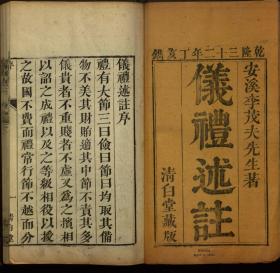 乾隆三十二年丁亥鐫
安溪李茂夫先生著
儀禮述註
清白堂藏版
儀禮述註序
禮有大節三曰儉曰均取其備
物不美其財賄適其中節不責其多
儀貴者不重賤者不虛又爲之擯相
以詔之成禮以及之等級相役以以
之故國不費而禮常行節不越而分
清白堂